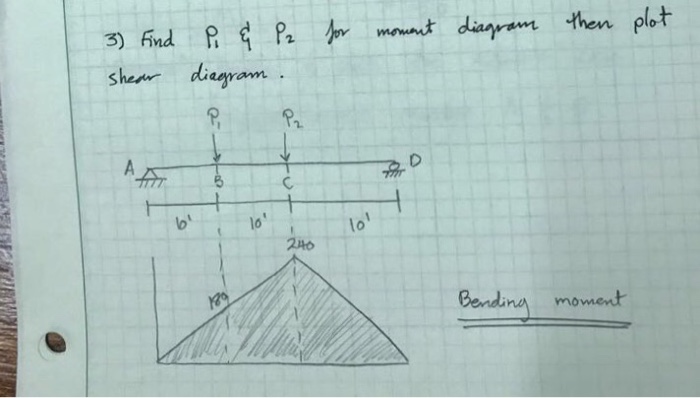 3) Find P1 & P2 for moment diagram then plot
shear diagram.
P1 P2
A D
B C
6' 10' 10'
240
180
Bending moment